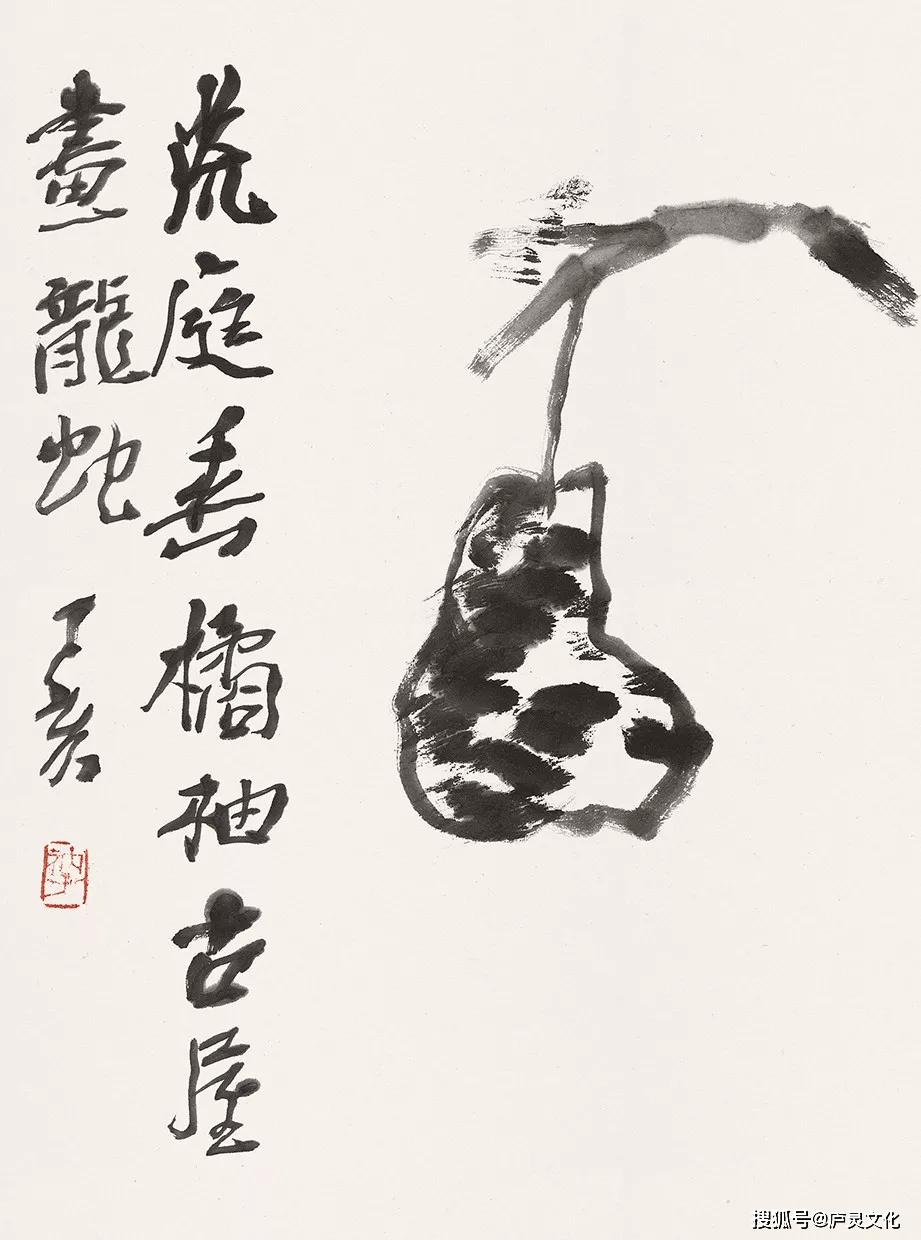 荒庭垂橘柚古屋
畫龍蛇
丁亥
搜狐号@庐灵文化